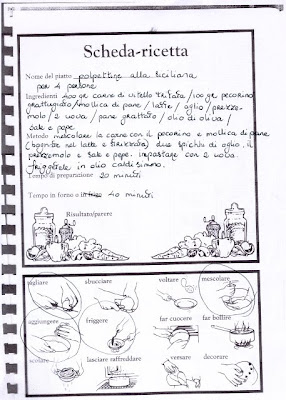 Scheda-ricetta
Nome del piatto polpettine alla siciliana
per 4 persone
Ingredienti 400 gr carne di vitello tritata / 100 gr pecorino
grattugiato / mollica di pane / latte / aglio / prezze-
molo / 2 uova / pane grattato / olio di oliva /
sale e pepe
Metodo mescolare la carne con il pecorino e mollica di pane
(bagnata nel latte e strizzata) due spicchi di aglio, il
prezzemolo e sale e pepe. impastare con 2 uova.
friggetele in olio caldissimo.
Tempo di preparazione 20 minuti
Tempo in forno o in frigo 40 minuti
Risultato/parere
tagliare sbucciare voltare mescolare
aggiungere friggere far cuocere far bollire
scolare lasciare raffreddare versare decorare